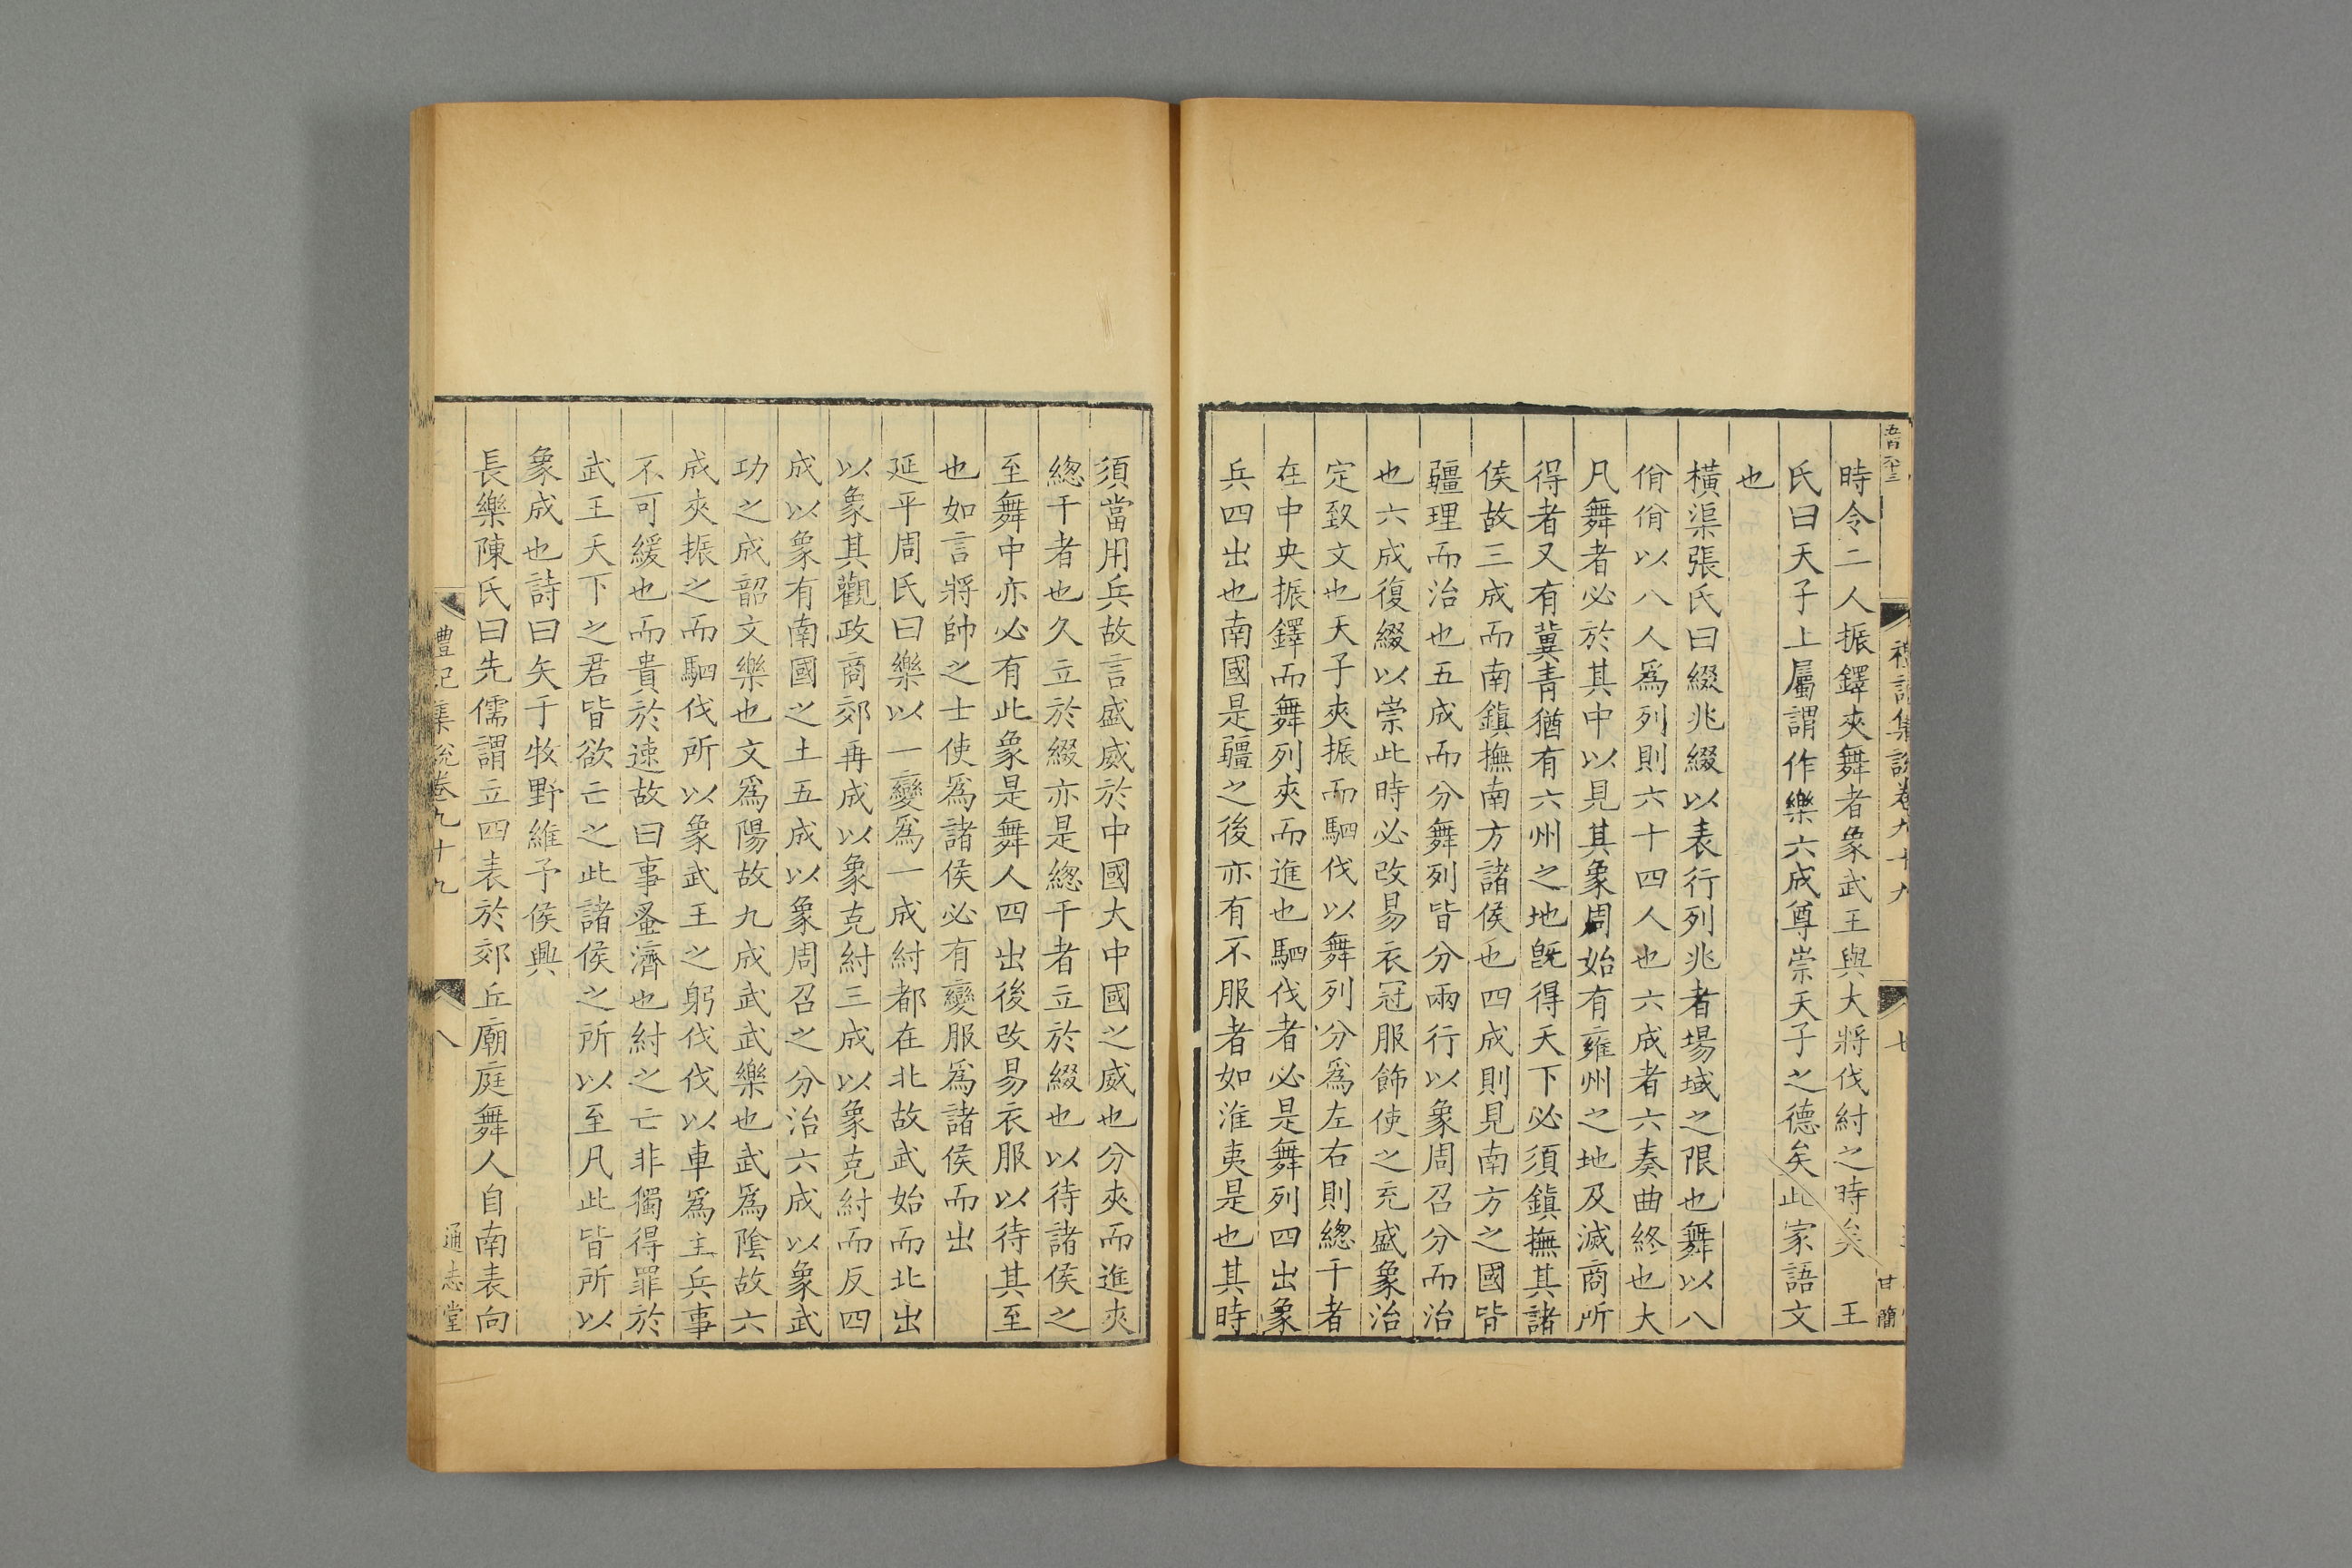 五百六十三
禮記集說卷九十九
七
甘簡
時令二人振鐸夾舞者象武王與大將伐紂之時矣 王
氏曰天子上屬謂作樂六成尊崇天子之德矣此家語文
也
橫渠張氏曰綴兆綴以表行列兆者場域之限也舞以八
佾佾以八人爲列則六十四人也六成者六奏曲終也大
凡舞者必於其中以見其象周始有雍州之地及滅商所
得者又有冀青猶有六州之地旣得天下必須鎮撫其諸
侯故三成而南鎮撫南方諸侯也四成則見南方之國皆
疆理而治也五成而分舞列皆分兩行以象周召分而治
也六成復綴以崇此時必改易衣冠服飾使之充盛象治
定致文也天子夾振而駟伐以舞列分爲左右則緫干者
在中央振鐸而舞列夾而進也駟伐者必是舞列四出象
兵四出也南國是疆之後亦有不服者如淮夷是也其時
須當用兵故言盛威於中國大中國之威也分夾而進夾
緫干者也久立於綴亦是緫干者立於綴也以待諸侯之
至舞中亦必有此象是舞人四出後改易衣服以待其至
也如言將帥之士使爲諸侯必有變服爲諸侯而出
延平周氏曰樂以一變爲一成紂都在北故武始而北出
以象其觀政商郊再成以象克紂三成以象克紂而反四
成以象有南國之土五成以象周召之分治六成以象武
功之成韶文樂也文爲陽故九成武武樂也武爲陰故六
成夾振之而駟伐所以象武王之躬伐伐以車爲主兵事
不可緩也而貴於速故曰事蚤濟也紂之亡非獨得罪於
武王天下之君皆欲亡之此諸侯之所以至凡此皆所以
象成也詩曰矢于牧野維予侯興
長樂陳氏曰先儒謂立四表於郊丘廟庭舞人自南表向
禮記集說卷九十九
八
通志堂